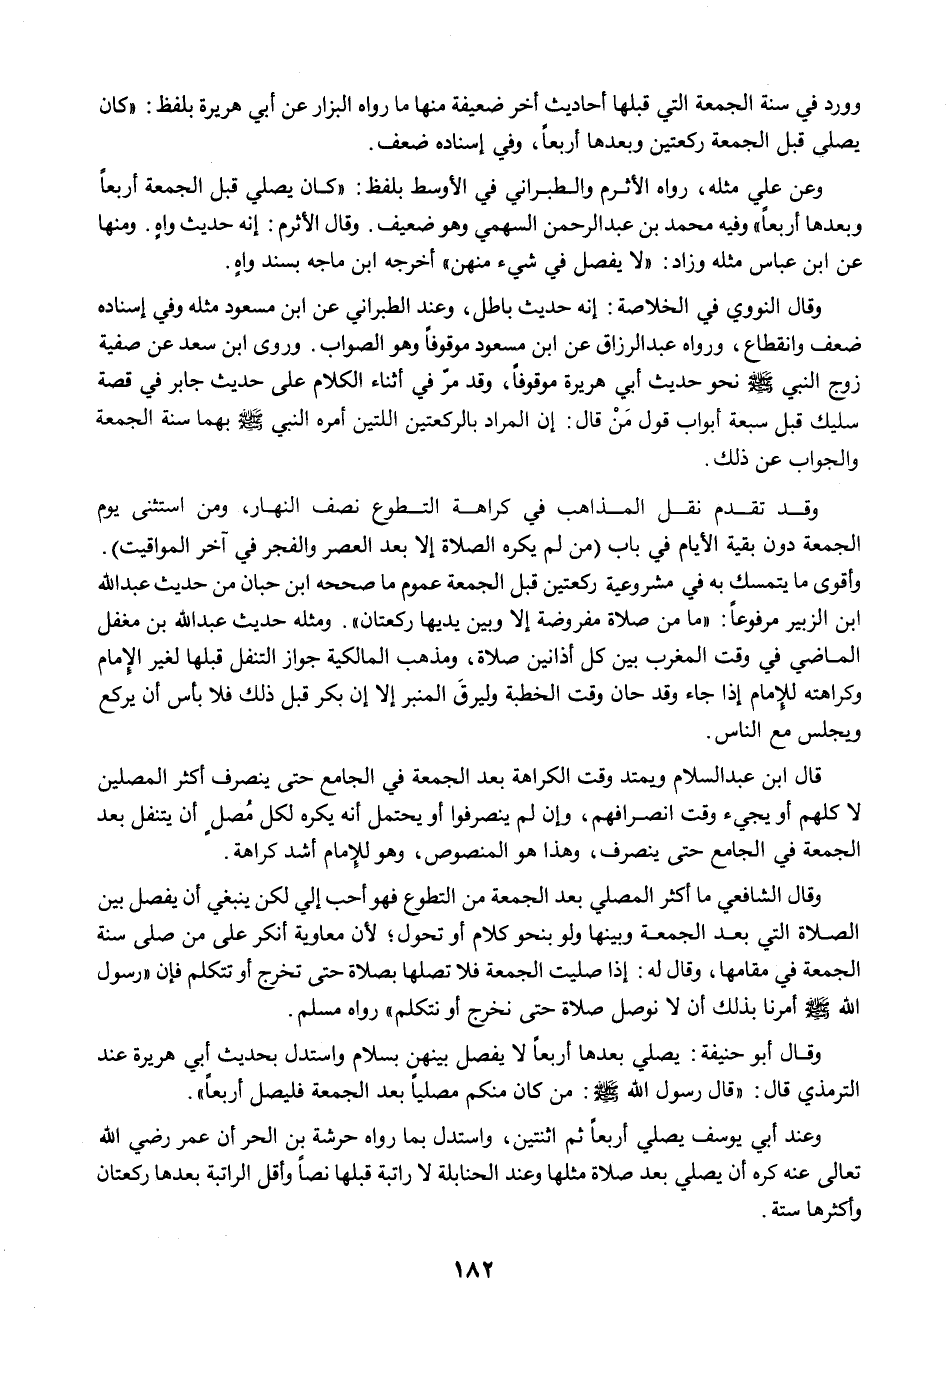 وورد في سنة الجمعة التي قبلها أحاديث أخر ضعيفة منها ما رواه البزار عن أبي هريرة بلفظ: «كان
يصلي قبل الجمعة ركعتين وبعدها أربعاً، وفي إسناده ضعف.
وعن علي مثله، رواه الأثرم والطبراني في الأوسط بلفظ: «كان يصلي قبل الجمعة أربعاً
وبعدها أربعاً» وفيه محمد بن عبدالرحمن السهمي وهو ضعيف. وقال الأثرم: إنه حديث واهٍ. ومنها
عن ابن عباس مثله وزاد: «لا يفصل في شيء منهن» أخرجه ابن ماجه بسند واهٍ.
وقال النووي في الخلاصة: إنه حديث باطل، وعند الطبراني عن ابن مسعود مثله وفي إسناده
ضعف وانقطاع، ورواه عبدالرزاق عن ابن مسعود موقوفاً وهو الصواب. وروى ابن سعد عن صفية
زوج النبي ﷺ نحو حديث أبي هريرة موقوفاً، وقد مرّ في أثناء الكلام على حديث جابر في قصة
سليك قبل سبعة أبواب قول مَنْ قال: إن المراد بالركعتين اللتين أمره النبي ﷺ بهما سنة الجمعة
والجواب عن ذلك.
وقد تقدم نقل المذاهب في كراهة التطوع نصف النهار، ومن استثنى يوم
الجمعة دون بقية الأيام في باب (من لم يكره الصلاة إلا بعد العصر والفجر في آخر المواقيت).
وأقوى ما يتمسك به في مشروعية ركعتين قبل الجمعة عموم ما صححه ابن حبان من حديث عبدالله
ابن الزبير مرفوعاً: «ما من صلاة مفروضة إلا وبين يديها ركعتان». ومثله حديث عبدالله بن مغفل
الماضي في وقت المغرب بين كل أذانين صلاة، ومذهب المالكية جواز التنفل قبلها لغير الإمام
وكراهته للإمام إذا جاء وقد حان وقت الخطبة وليرقَ المنبر إلا إن بكر قبل ذلك فلا بأس أن يركع
ويجلس مع الناس.
قال ابن عبدالسلام ويمتد وقت الكراهة بعد الجمعة في الجامع حتى ينصرف أكثر المصلين
لا كلهم أو يجيء وقت انصرافهم، وإن لم ينصرفوا أو يحتمل أنه يكره لكل مُصلٍ أن يتنفل بعد
الجمعة في الجامع حتى ينصرف، وهذا هو المنصوص، وهو للإمام أشد كراهة.
وقال الشافعي ما أكثر المصلي بعد الجمعة من التطوع فهو أحب إلي لكن ينبغي أن يفصل بين
الصلاة التي بعد الجمعة وبينها ولو بنحو كلام أو تحول؛ لأن معاوية أنكر على من صلى سنة
الجمعة في مقامها، وقال له: إذا صليت الجمعة فلا تصلها بصلاة حتى تخرج أو تتكلم فإن «رسول
الله ﷺ أمرنا بذلك أن لا نوصل صلاة حتى نخرج أو نتكلم» رواه مسلم.
وقال أبو حنيفة: يصلي بعدها أربعاً لا يفصل بينهن بسلام واستدل بحديث أبي هريرة عند
الترمذي قال: «قال رسول الله ﷺ: من كان منكم مصلياً بعد الجمعة فليصل أربعاً».
وعند أبي يوسف يصلي أربعاً ثم اثنتين، واستدل بما رواه حرشة بن الحر أن عمر رضي الله
تعالى عنه كره أن يصلي بعد صلاة مثلها وعند الحنابلة لا راتبة قبلها نصاً وأقل الراتبة بعدها ركعتان
وأكثرها ستة.
١٨٢